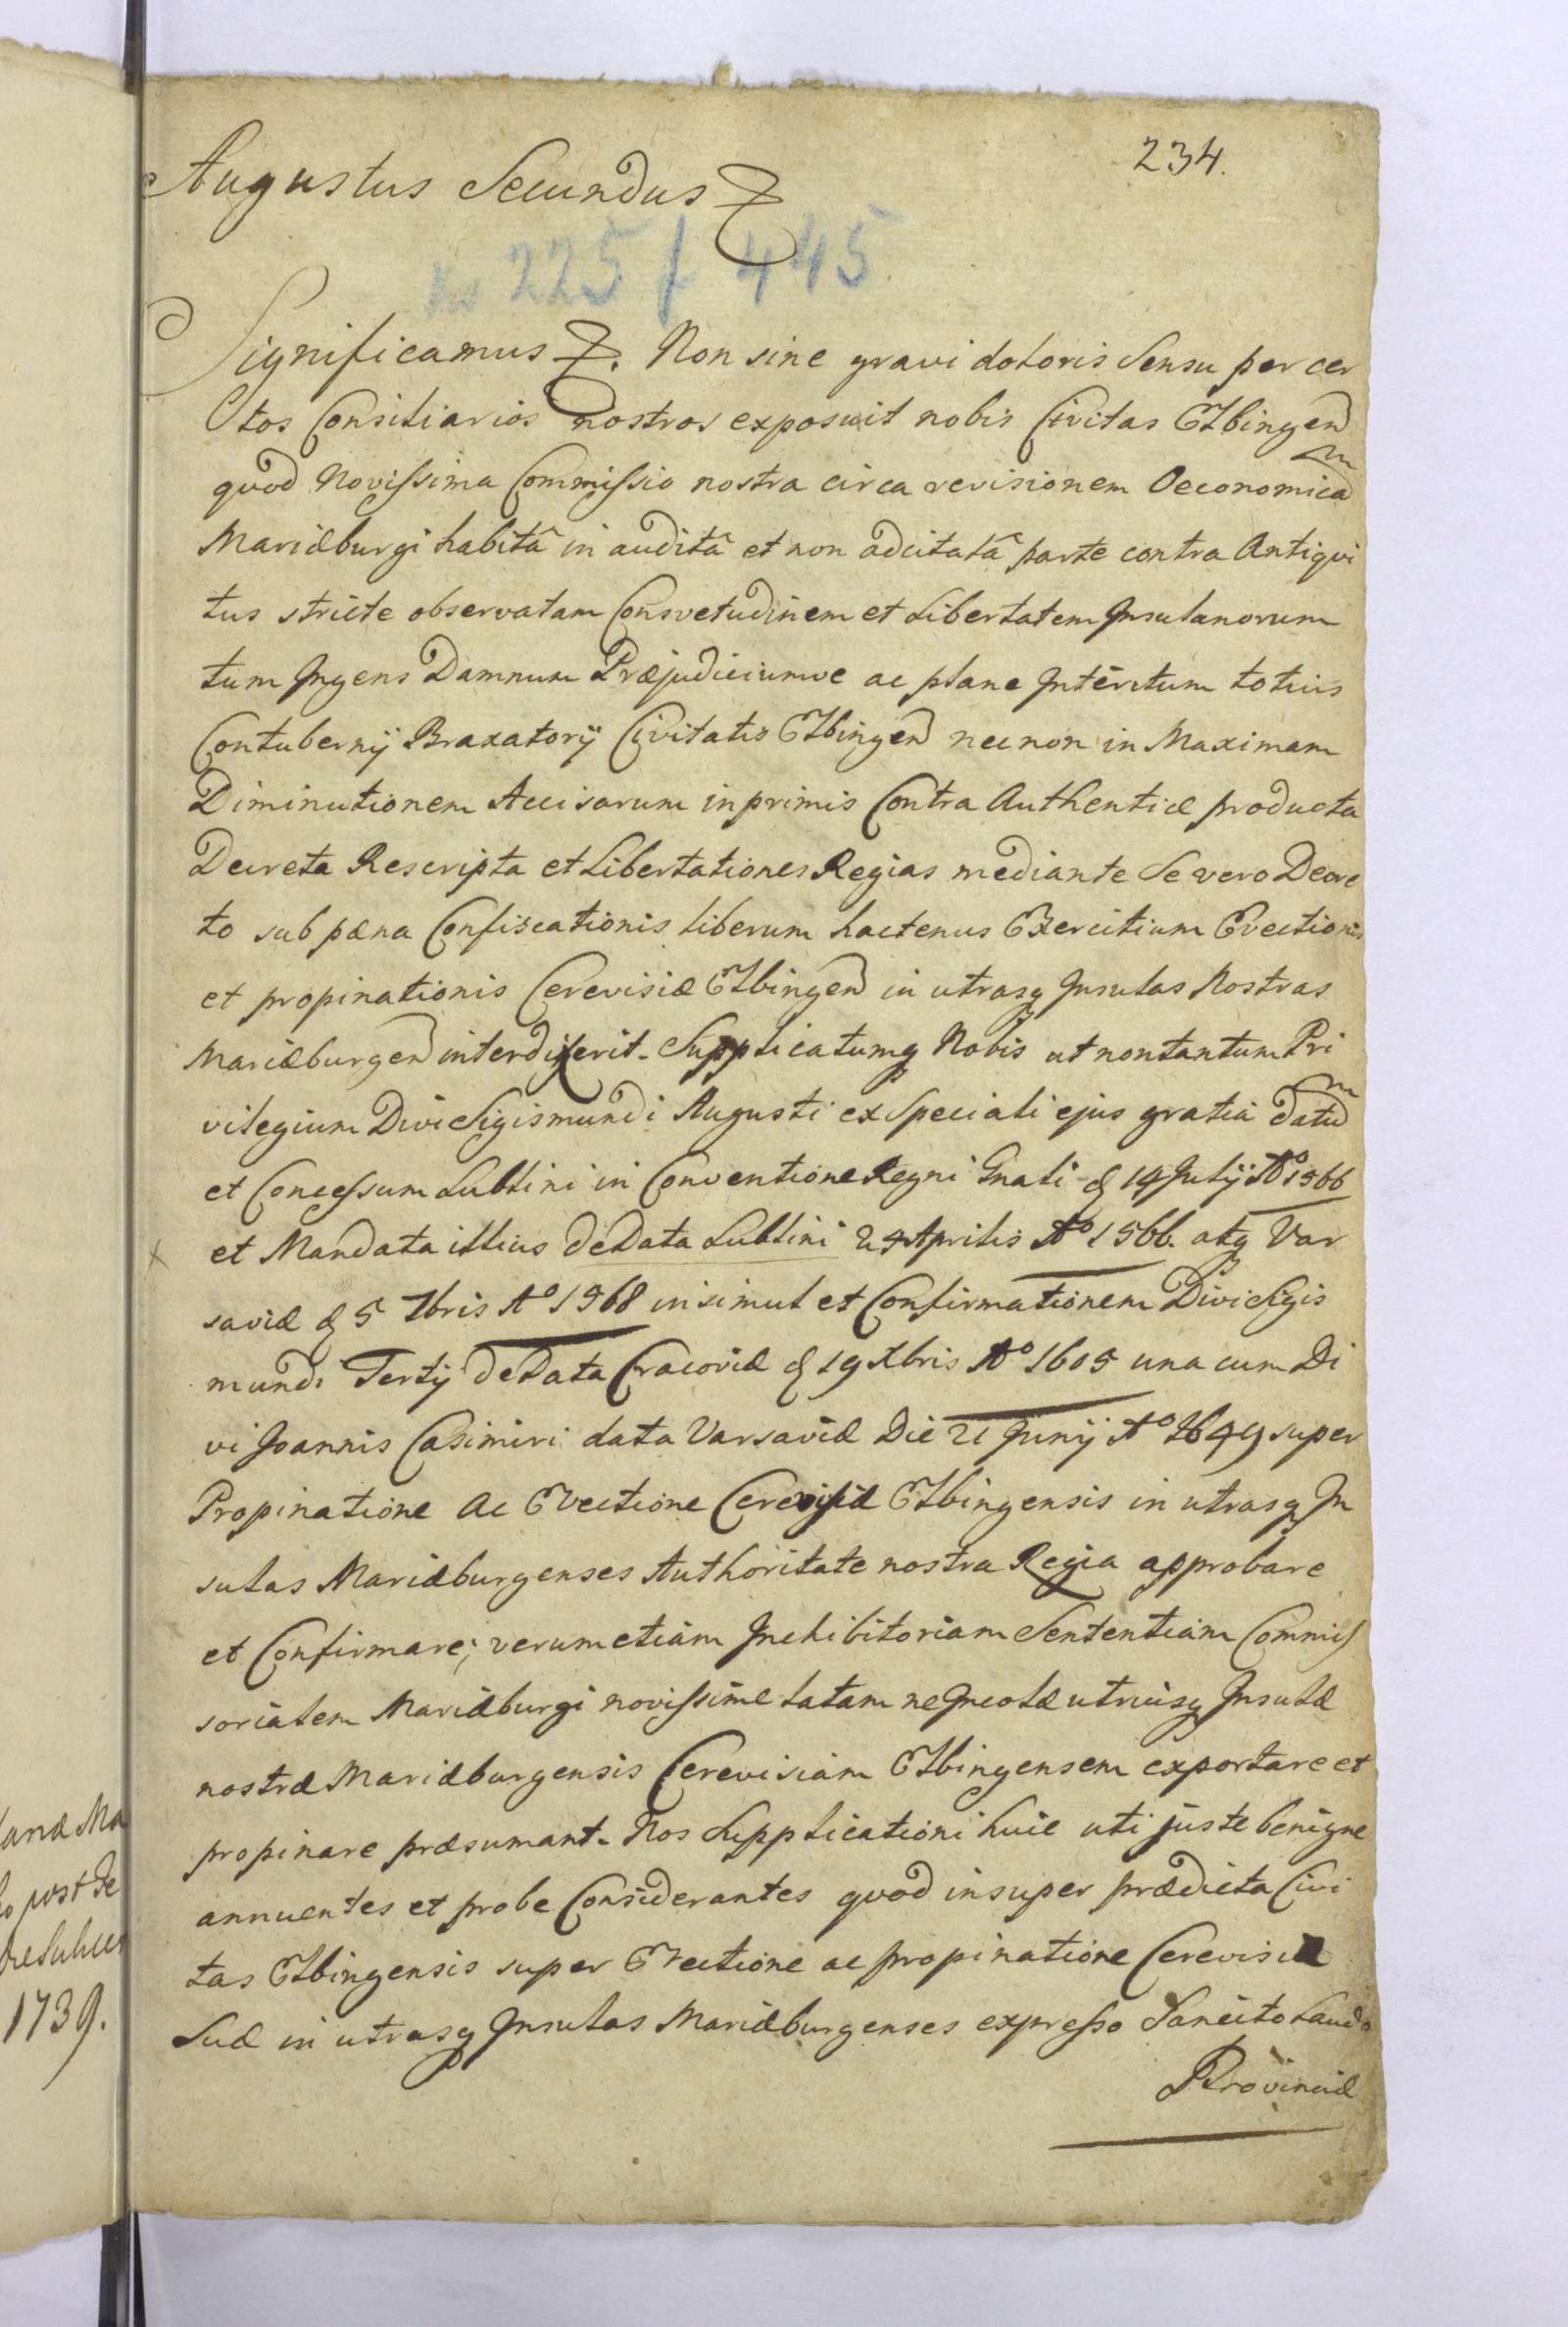 234.
Augustus Secundus
No 225 f 445
Significamus. Non sine gravi doloris Sensu per cer
tos Consiliarios nostros exposuit nobis Civitas Elbingen
quod Novissima Commissio nostra circa revisionem Oeconomica
Mariæburgi habitâ in auditâ et non adcitatâ parte contra Antiqvi
tus stricte observatam Consvetudinem et Libertatem Insulanorum
tum Ingens Damnum Præjudiciumve ac plane Interitum totius
Contubernij Braxatorij Civitatis Elbingen nec non in Maximam
Diminutionem Accisarum inprimis Contra Authenticæ producta
Decreta Rescripta et Libertationes Regias mediante Severo Decre
to sub pæna Confiscationis liberum hactenus Exercitium Evectionis
et propinationis Cerevisiæ Elbingen in utrasq Insulas Nostras
Mariæburgen interdixerit. Supplicatumq Nobis ut non tantum Pri
vilegium Divi Sigismundi Augusti ex Speciali ejus gratia datu
et Concessum Lublini in Conventione Regni Gnali d 14 Julij Aº 1566
et Mandata illius de Data Lublini 24 Aprilis Aº 1566. atq Var
saviæ d 5 7bris Aº 1568 insimul et Confirmationem Divi Sigis
mundi Tertij de Data Cracoviæ d 19 Xbris Aº 1605 una cum Di
vi Joannis Casimiri data Varsaviæ Die 21 Junij Aº 1649 super
Propinatione ac Evectione Cerevisiæ Elbingensis in utrasq In
sulas Mariæburgenses Authoritate nostra Regia approbare
et Confirmare; verum etiam Inhibitoriam Sententiam Commis
sorialem Mariæburgi novissime latam ne Incolæ utriusq Insulæ
nostræ Mariæburgensis Cerevisiam Elbingensem exportare et
propinare præsumant. Nos Supplicationi huic uti juste benigne
annuentes et probe Considerantes quod insuper prædicta Civi
tas Elbingensis super Evectione ac propinatione Cerevisiæ
Suæ in utrasq Insulas Mariæburgenses expresso Sancito Laudo
Provinciæ
post de
1739.